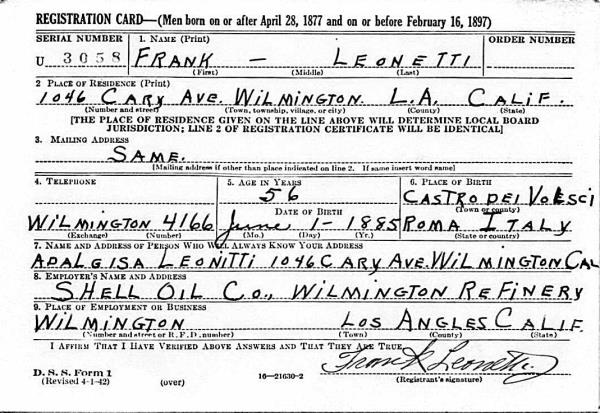 REGISTRATION CARD—(Men born on or after April 28, 1877 and on or before February 16, 1897)
SERIAL NUMBER 1. NAME (Print) ORDER NUMBER
U 3058 FRANK — LEONETTI
(First) (Middle) (Last)
2 PLACE OF RESIDENCE (Print)
1046 CARY AVE. WILMINGTON. L.A. CALIF.
(Number and street) (Town, township, village, or city) (County) (State)
[THE PLACE OF RESIDENCE GIVEN ON THE LINE ABOVE WILL DETERMINE LOCAL BOARD
JURISDICTION; LINE 2 OF REGISTRATION CERTIFICATE WILL BE IDENTICAL]
3. MAILING ADDRESS
SAME.
[Mailing address if other than place indicated on line 2. If same insert word same]
4. TELEPHONE 5. AGE IN YEARS 6. PLACE OF BIRTH
56 CASTRO DEI VOLSCI
DATE OF BIRTH (Town or county)
WILMINGTON 4166 June 1-1885 ROMA ITALY
(Exchange) (Number) (Mo.) (Day) (Yr.) (State or country)
7. NAME AND ADDRESS OF PERSON WHO WILL ALWAYS KNOW YOUR ADDRESS
ADALGISA LEONITTI 1046 CARY AVE. WILMINGTON CAL
8. EMPLOYER'S NAME AND ADDRESS
SHELL OIL CO., WILMINGTON REFINERY
9. PLACE OF EMPLOYMENT OR BUSINESS
WILMINGTON LOS ANGLES CALIF.
(Number and street or R. F. D. number) (Town) (County) (State)
I AFFIRM THAT I HAVE VERIFIED ABOVE ANSWERS AND THAT THEY ARE TRUE.
Frank Leonetti
D. S. S. Form 1
(Revised 4-1-42) (over) 16—21630-2 (Registrant's signature)